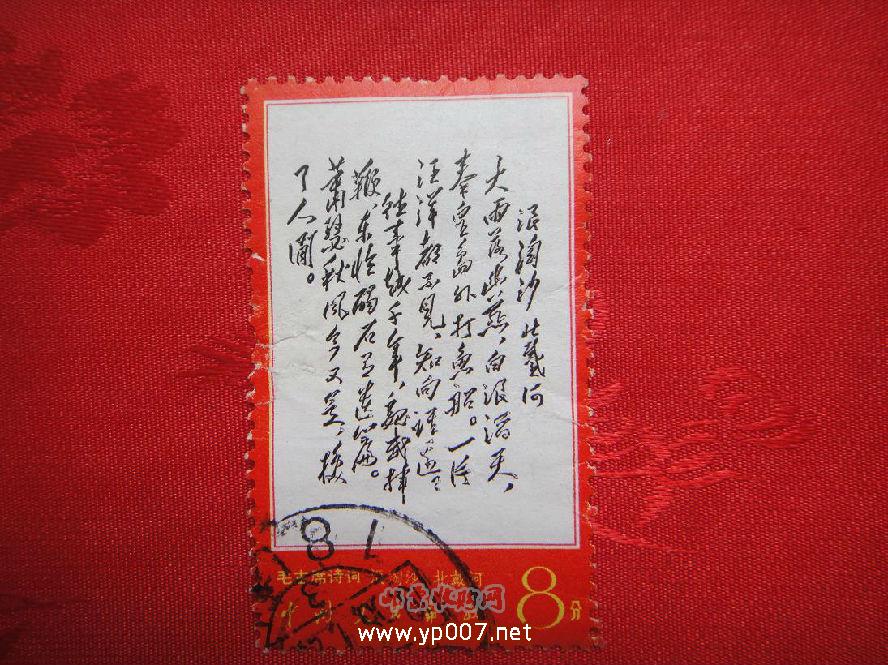 浪淘沙 北戴河
大雨落幽燕,白浪滔天,
秦皇島外打魚船。一片
汪洋都不見,知向誰邊?
往事越千年,魏武揮
鞭,东臨碣石有遺篇。
蕭瑟秋風今又是,換
了人間。
8 1
毛主席诗词 浪淘沙 北戴河
中国人民邮政
8分
www.yp007.net